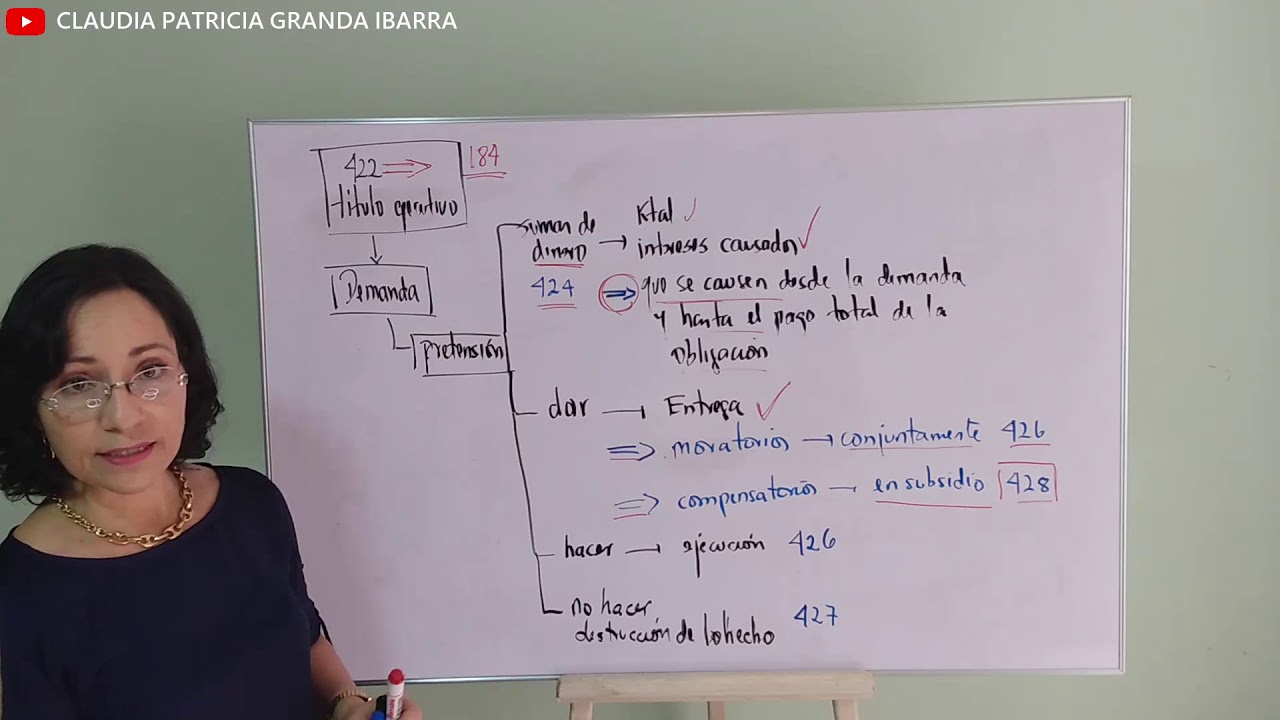 CLAUDIA PATRICIA GRANDA IBARRA
422 ⇒ 184
título ejecutivo
Demanda
pretensión
sumas de
dinero →
424
Ktal ✓
intereses causados ✓
⇒ que se causen desde la demanda
y hasta el pago total de la
obligación
dar → Entrega ✓
⇒ moratorios → conjuntamente 426
⇒ compensatorios → en subsidio 428
hacer → ejecución 426
no hacer
destrucción de lo hecho 427